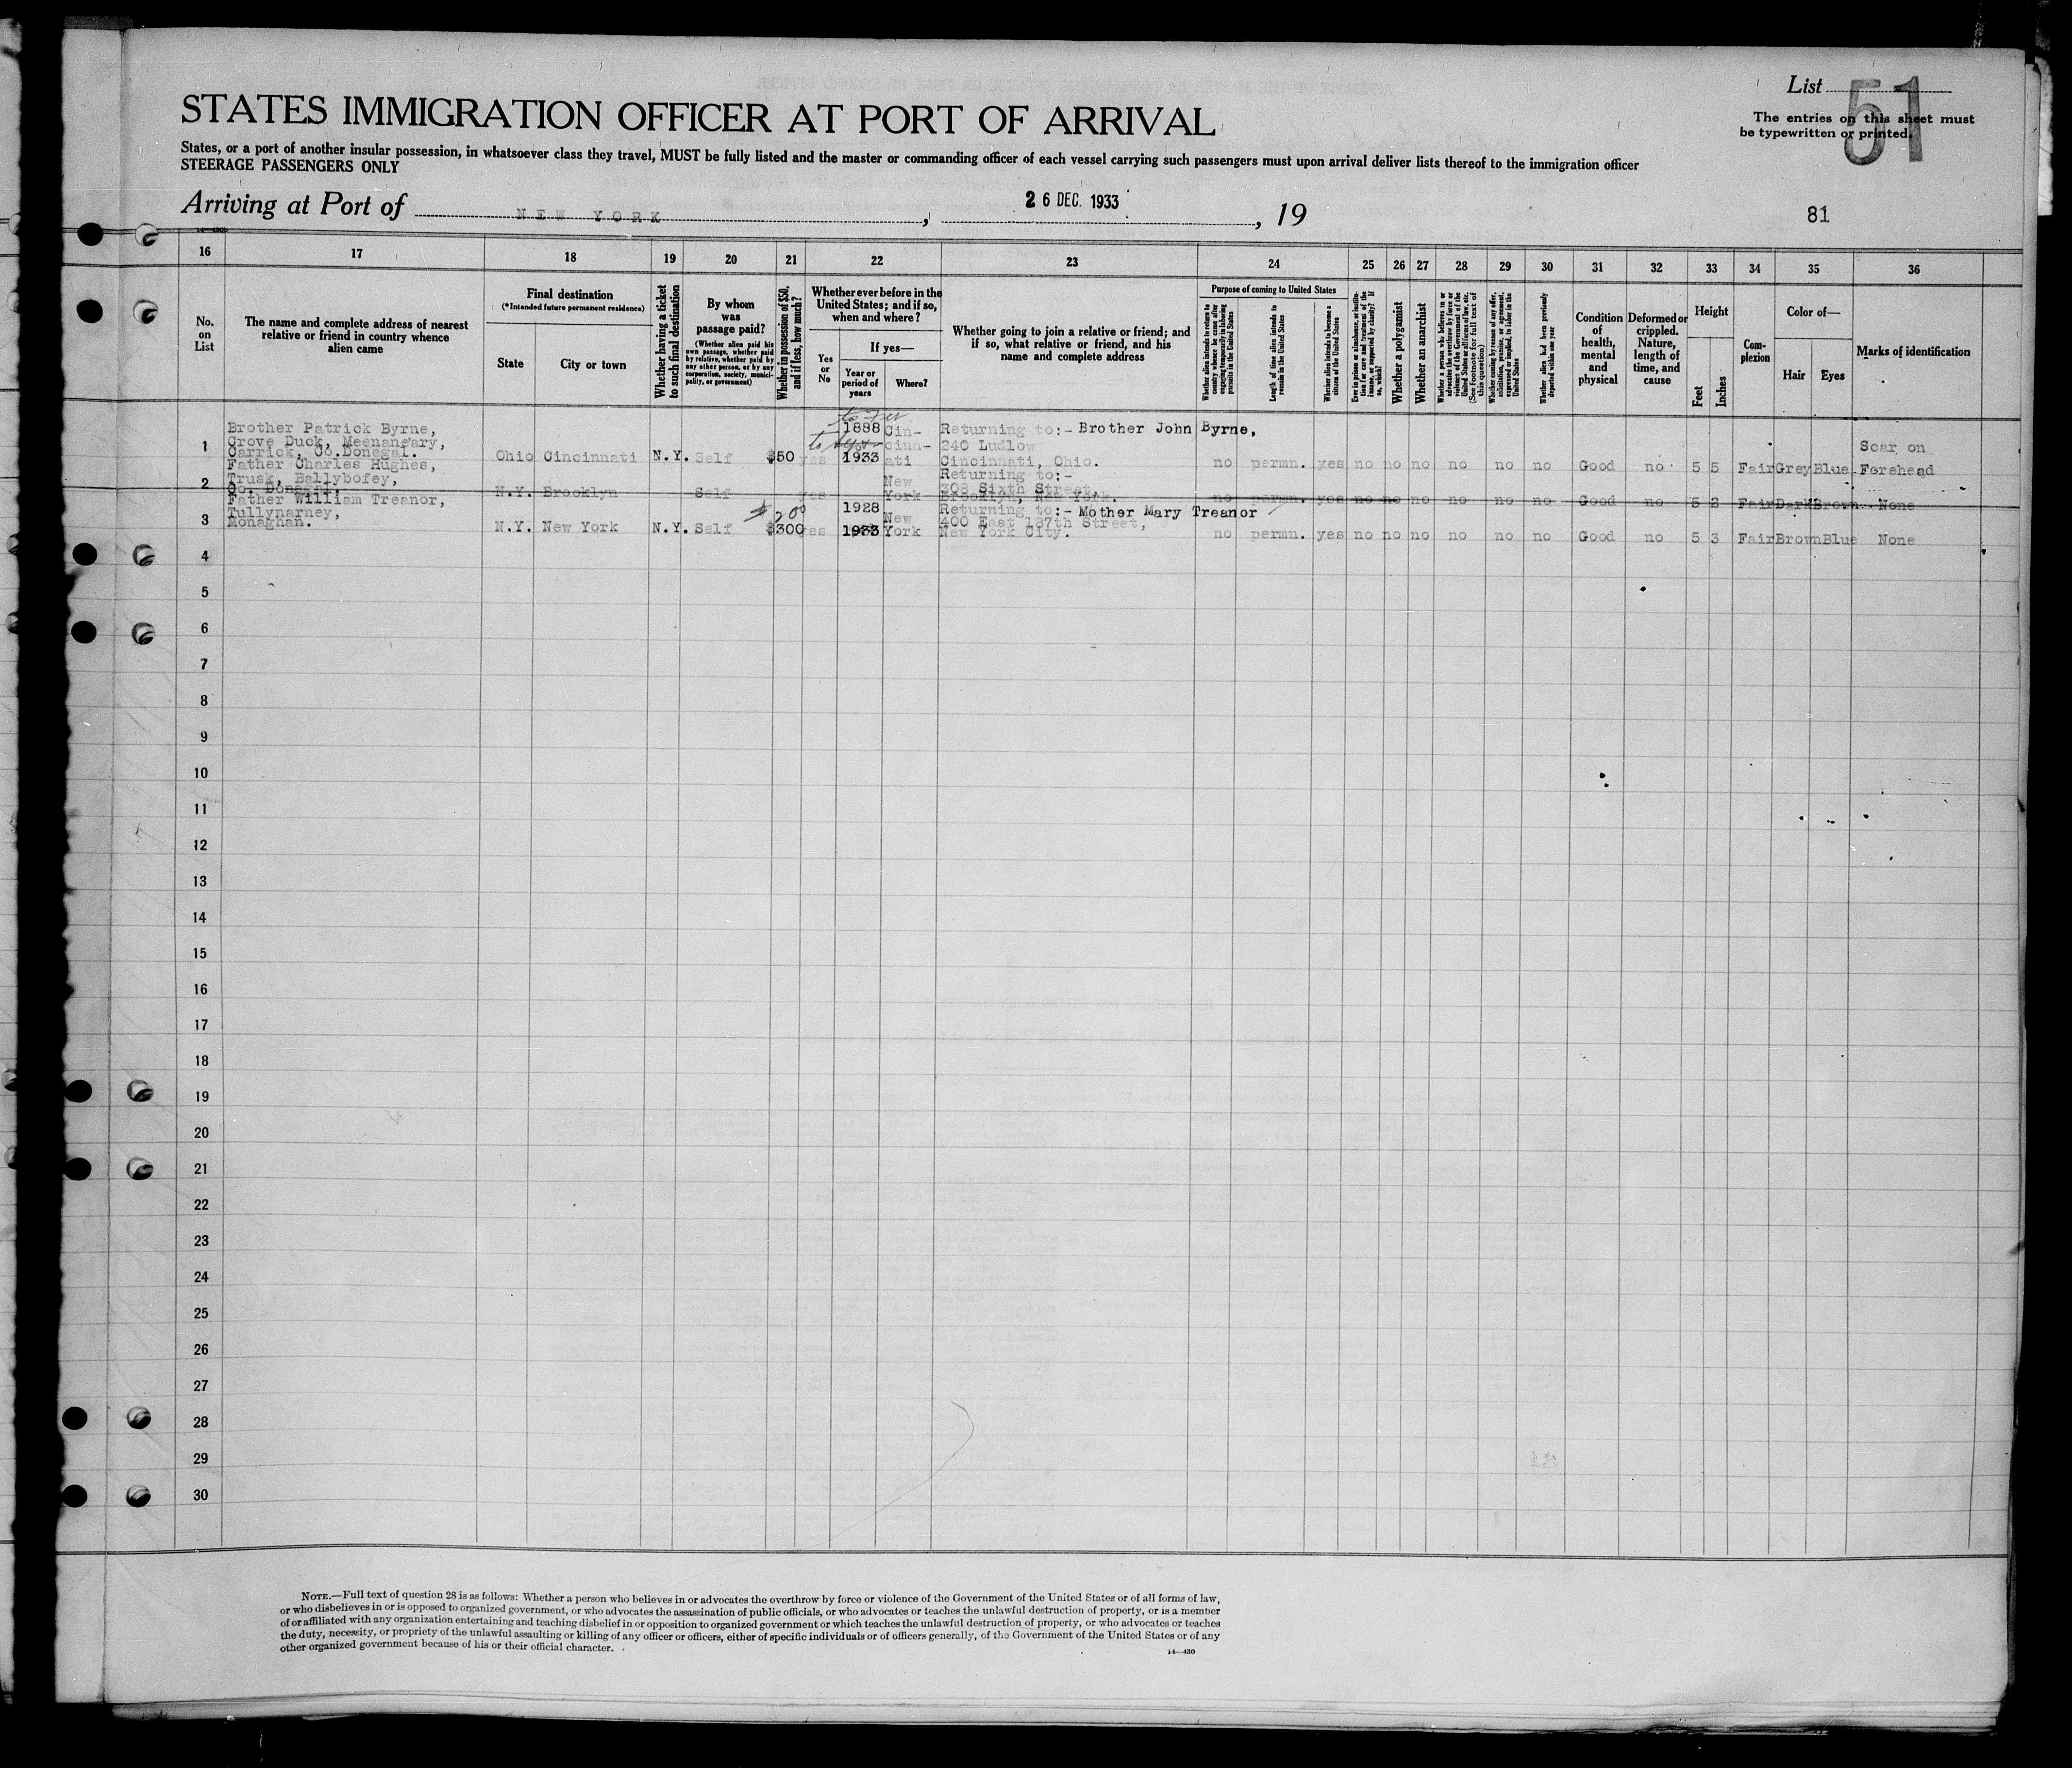 List 51
The entries on this sheet must
be typewritten or printed.
STATES IMMIGRATION OFFICER AT PORT OF ARRIVAL
States, or a port of another insular possession, in whatsoever class they travel, MUST be fully listed and the master or commanding officer of each vessel carrying such passengers must upon arrival deliver lists thereof to the immigration officer
STEERAGE PASSENGERS ONLY
Arriving at Port of NEW YORK, 26 DEC. 1933, 19
81
14—430
16 17 18 19 20 21 22 23 24 25 26 27 28 29 30 31 32 33 34 35 36
No.
on
List
The name and complete address of nearest
relative or friend in country whence
alien came
Final destination
(*Intended future permanent residence)
State
City or town
Whether having a ticket
to such final destination
By whom
was
passage paid?
(Whether alien paid his
own passage, whether paid
by relative, whether paid by
any other person, or by any
corporation, society, munici-
pality, or government)
Whether in possession of $50,
and if less, how much?
Whether ever before in the
United States; and if so,
when and where?
Yes
or
No
If yes—
Year or
period of
years
Where?
Whether going to join a relative or friend; and
if so, what relative or friend, and his
name and complete address
Purpose of coming to United States
Whether alien intends to return to
country whence he came after
engaging temporarily in laboring
pursuits in the United States
Length of time alien intends to
remain in the United States
Whether alien intends to become a
citizen of the United States
Ever in prison or almshouse, or institu-
tion for care and treatment of the
insane, or supported by charity? If
so, which?
Whether a polygamist
Whether an anarchist
Whether a person who believes in or
advocates the overthrow by force or
violence of the Government of the
United States or all forms of law, etc.
(See footnote for full text of
this question)
Whether coming by reason of any offer,
solicitation, promise, or agreement,
expressed or implied, to labor in the
United States
Whether alien had been previously
deported within one year
Condition
of
health,
mental
and
physical
Deformed or
crippled.
Nature,
length of
time, and
cause
Height
Feet
Inches
Com-
plexion
Color of—
Hair
Eyes
Marks of identification
1
Brother Patrick Byrne,
Crove Duck, Meenaneary,
Carrick, Co.Donegal.
Ohio Cincinnati N.Y. Self $50 yes
1888
1933
Cin-
cinn-
ati
Returning to:- Brother John Byrne,
240 Ludlow
Cincinnati, Ohio.
no permn. yes no no no no no no Good no 5 5 Fair Grey Blue
Scar on
Forehead
2
Father Charles Hughes,
Trusk, Ballybofey,
Co. Donegal.
N.Y. Brooklyn Self yes
New
York
Returning to:-
308 Sixth Street,
Brooklyn, New York.
no permn. yes no no no no no no Good no 5 2 Fair Dark Brown None
3
Father William Treanor,
Tullynarney,
Monaghan.
N.Y. New York N.Y. Self
$200
$300 yes
1928
1933
New
York
Returning to:- Mother Mary Treanor
400 East 187th Street,
New York City.
no permn. yes no no no no no no Good no 5 3 Fair Brown Blue None
4
5
6
7
8
9
10
11
12
13
14
15
16
17
18
19
20
21
22
23
24
25
26
27
28
29
30
NOTE.—Full text of question 28 is as follows: Whether a person who believes in or advocates the overthrow by force or violence of the Government of the United States or of all forms of law,
or who disbelieves in or is opposed to organized government, or who advocates the assassination of public officials, or who advocates or teaches the unlawful destruction of property, or is a member
of or affiliated with any organization entertaining and teaching disbelief in or opposition to organized government or which teaches the unlawful destruction of property, or who advocates or teaches
the duty, necessity, or propriety of the unlawful assaulting or killing of any officer or officers, either of specific individuals or of officers generally, of the Government of the United States or of any
other organized government because of his or their official character.
14—430